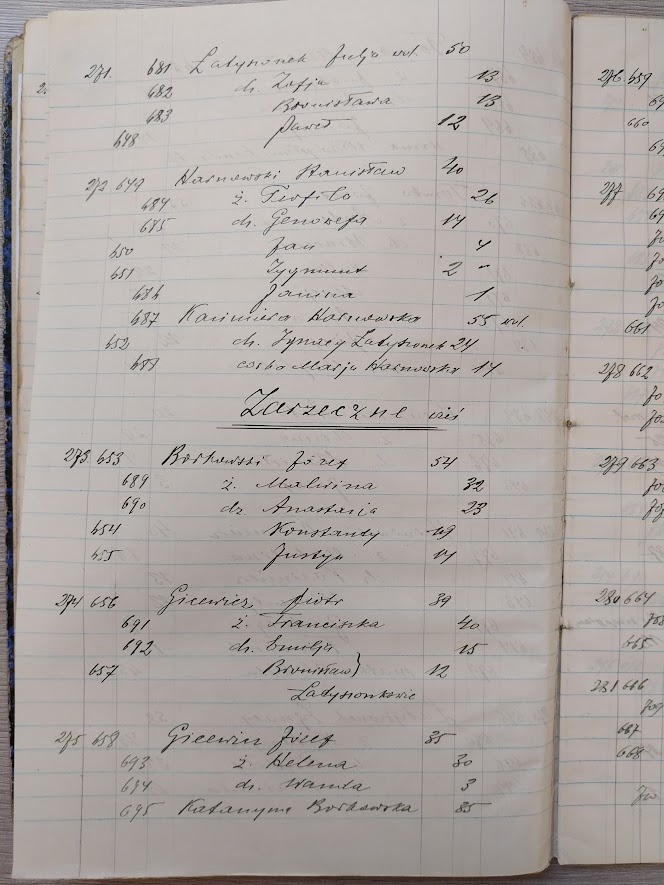 271. 681 Łatyszonek Julja wd. 50
682 dz. Zofja 13
683 Bronisława 13
648 Paweł 12
272 649 Harnowski Stanisław 40
684 ż. Teofila 26
685 dz. Genowefa 14
650 Jan 4
651 Zygmunt 2 -
686 Janina 1
687 Kazimiera Harnowska 55 wd.
652 dz. Ignacy Łatyszonek 24
688 córka Marja Harnowska 17
Zarzeczne wieś
273 653 Borkowski Józef 54
689 ż. Malwina 32
690 dz. Anastazja 23
654 Konstanty 19
655 Justyn 14
274 656 Gicewicz Piotr 39
691 ż. Franciszka 40
692 dz. Emilja 15
657 Bronisław} 12
Łatyszonkowie
275 658 Gicewicz Józef 35
693 ż. Helena 30
694 dz. Wanda 3
695 Katarzyna Borkowska 85
276 659
660
277
661
278 662
279 663
280 664
665
281 666
667
668